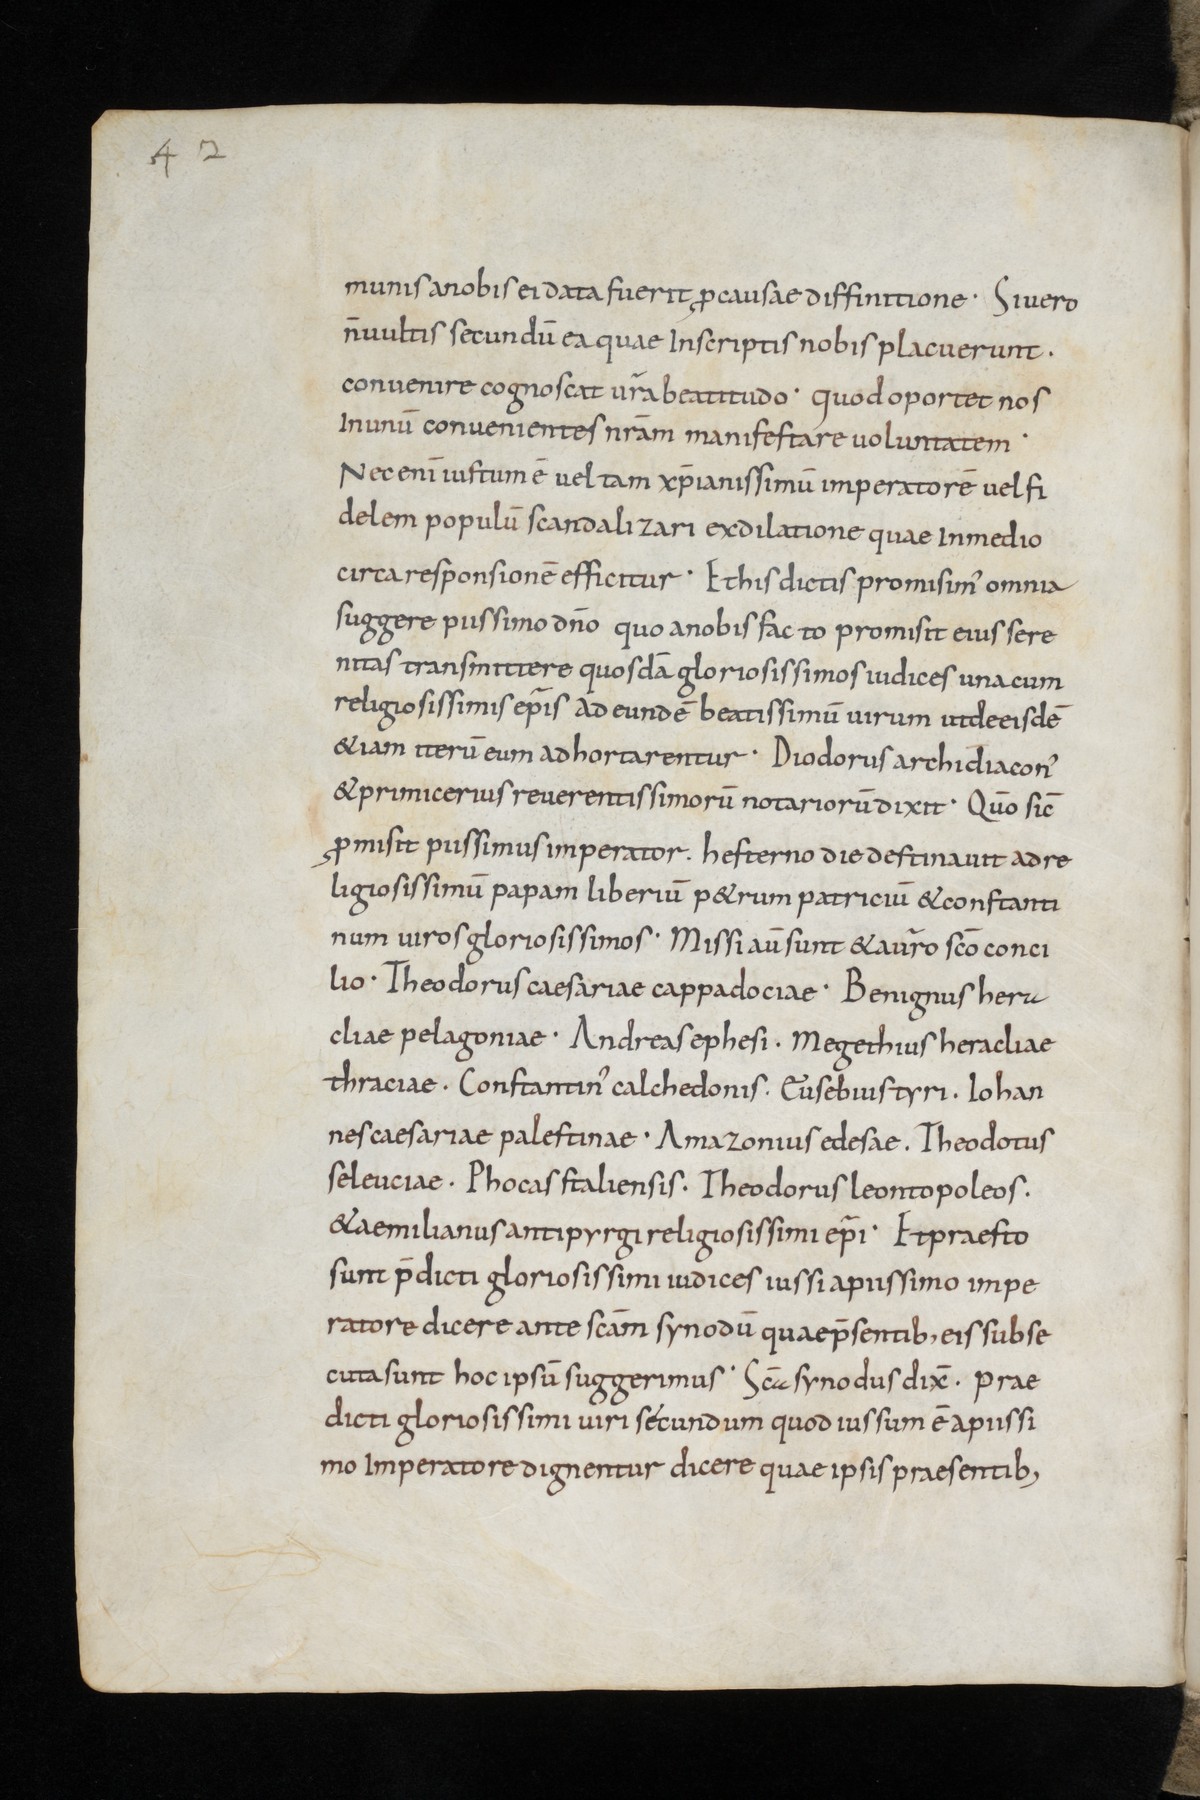 42
munis a nobis ei data fuerit ꝓ causae diffinitione · Si uero
n̄ uultis secundū ea quae In scriptis nobis placuerunt .
conuenire cognoscat ur̄a beatitudo · quod oportet nos
In unū conuenientes nr̄am manifestare uoluntatem ·
Nec enī iustum ē uel tam xp̄ianissimū imperatorē uel fi
delem populū scandalizari ex dilatione quae In medio
circa responsionē efficitur · Et his dictis promisim᾽ omnia
suggere piissimo dn̄o quo a nobis facto promisit eius sere
nitas transmittere quosdā gloriosissimos iudices una cum
religiosissimis ep̄is ad eundē beatissimū uirum ut de eisdē
&iam iterū eum adhortarentur · Diodorus archidiacon᾽
& primicerius reuerentissimorū notariorū dixit · Quō sic̄
ꝓmisit piissimus imperator . hesterno die destinauit ad re
ligiosissimū papam liberiū p&rum patriciū & constanti
num uiros gloriosissimos · Missi aū sunt & a ur̄o scō conci
lio · Theodorus caesariae cappadociae · Benignus hera
cliae pelagoniae · Andreas ephesi . Megethius heracliae
thraciae . Constantin᾽ calchedonis . Eusebius tyri . Iohan
nes caesariae palestinae · Amazonius edesae . Theodotus
seleuciae . Phocas staliensis . Theodorus leontopoleos .
& aemilianus antipyrgi religiosissimi ep̄i · Et praesto
sunt p̄dicti gloriosissimi iudices iussi a piissimo impe
ratore dicere ante scām synodū quae p̄sentib; eis subse
cuta sunt hoc ipsū suggerimus · Scā synodus dix̄ . Prae
dicti gloriosissimi uiri secundum quod iussum ē a piissi
mo Imperatore dignentur dicere quae ipsis praesentib;